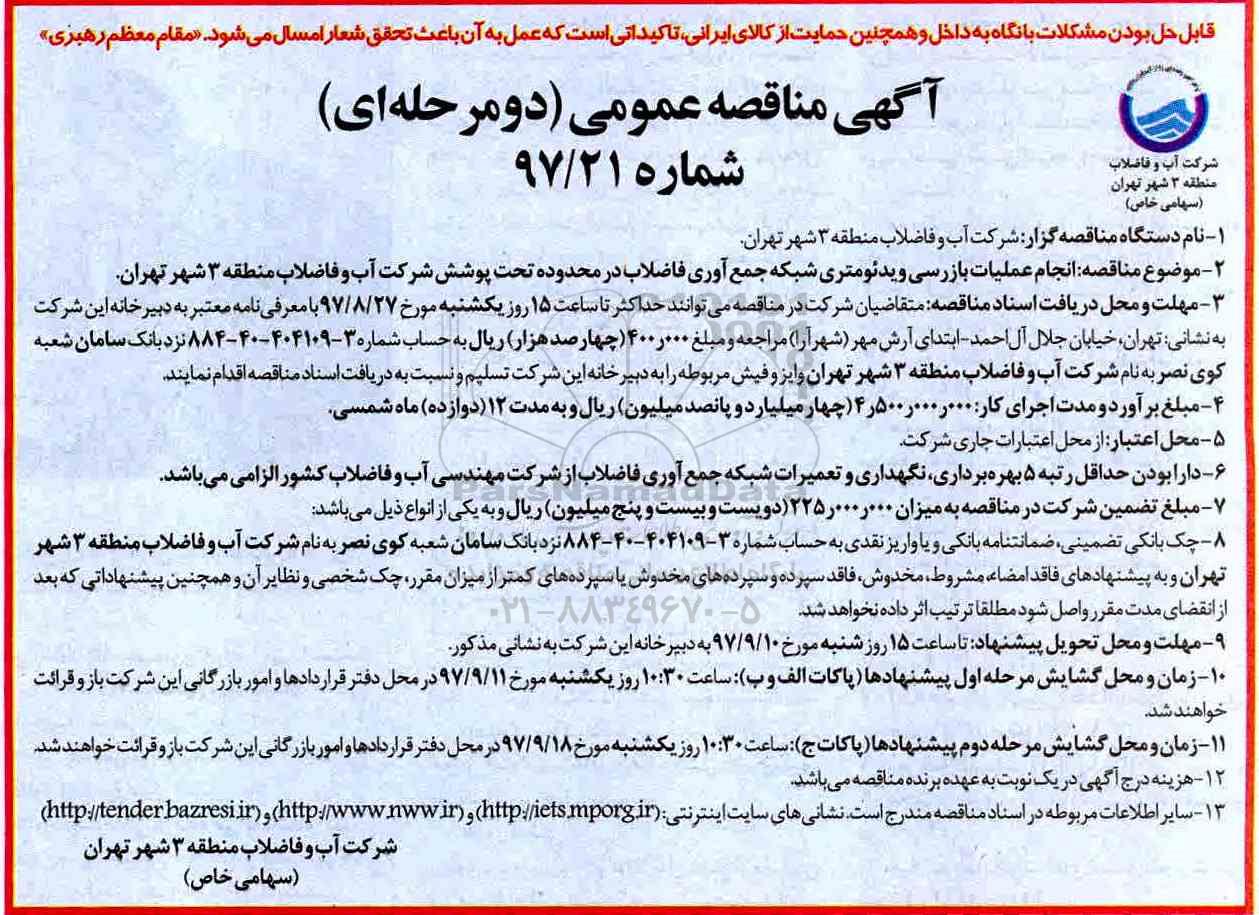 قابل حل بودن مشکلات با نگاه به داخل و همچنین حمایت از کالای ایرانی، تاکیداتی است که عمل به آن باعث تحقق شعار امسال می شود. «مقام معظم رهبری»
آگهی مناقصه عمومی (دو مرحله‌ای)
شماره ۹۷/۲۱
شرکت آب و فاضلاب
منطقه ۳ شهر تهران
(سهامی خاص)
۱-نام دستگاه مناقصه گزار: شرکت آب و فاضلاب منطقه ۳ شهر تهران.
۲-موضوع مناقصه: انجام عملیات بازرسی ویدئومتری شبکه جمع آوری فاضلاب در محدوده تحت پوشش شرکت آب و فاضلاب منطقه ۳ شهر تهران.
۳-مهلت و محل دریافت اسناد مناقصه: متقاضیان شرکت در مناقصه می توانند حداکثر تا ساعت ۱۵ روز یکشنبه مورخ ۹۷/۸/۲۷ با معرفی نامه معتبر به دبیرخانه این شرکت
به نشانی: تهران، خیابان جلال آل احمد-ابتدای آرش مهر (شهرآرا) مراجعه و مبلغ ۴۰۰ر۰۰۰ (چهارصد هزار) ریال به حساب شماره ۳-۴۰۴۱۰۹-۴۰-۸۸۴ نزد بانک سامان شعبه
کوی نصر به نام شرکت آب و فاضلاب منطقه ۳ شهر تهران واریز و فیش مربوطه را به دبیرخانه این شرکت تسلیم و نسبت به دریافت اسناد مناقصه اقدام نمایند.
۴-مبلغ برآورد و مدت اجرای کار: ۴ر۵۰۰ر۰۰۰ر۰۰۰ (چهار میلیارد و پانصد میلیون) ریال و به مدت ۱۲ (دوازده) ماه شمسی.
۵-محل اعتبار: از محل اعتبارات جاری شرکت.
۶-دارا بودن حداقل رتبه ۵ بهره برداری، نگهداری و تعمیرات شبکه جمع آوری فاضلاب از شرکت مهندسی آب و فاضلاب کشور الزامی می باشد.
۷-مبلغ تضمین شرکت در مناقصه به میزان ۲۲۵ر۰۰۰ر۰۰۰ (دویست و بیست و پنج میلیون) ریال و به یکی از انواع ذیل می باشد:
۸-چک بانکی تضمینی، ضمانتنامه بانکی و یا واریز نقدی به حساب شماره ۳-۴۰۴۱۰۹-۴۰-۸۸۴ نزد بانک سامان شعبه کوی نصر به نام شرکت آب و فاضلاب منطقه ۳ شهر
تهران و به پیشنهادهای فاقد امضاء، مشروط، مخدوش، فاقد سپرده و سپرده‌های مخدوش یا سپرده‌های کمتر از میزان مقرر، چک شخصی و نظایر آن و همچنین پیشنهاداتی که بعد
از انقضای مدت مقرر واصل شود مطلقا ترتیب اثر داده نخواهد شد.
۹-مهلت و محل تحویل پیشنهاد: تا ساعت ۱۵ روز شنبه مورخ ۹۷/۹/۱۰ به دبیرخانه این شرکت به نشانی مذکور.
۱۰-زمان و محل گشایش مرحله اول پیشنهادها (پاکات الف و ب): ساعت ۱۰:۳۰ روز یکشنبه مورخ ۹۷/۹/۱۱ در محل دفتر قراردادها و امور بازرگانی این شرکت باز و قرائت
خواهند شد.
۱۱-زمان و محل گشایش مرحله دوم پیشنهادها (پاکات ج): ساعت ۱۰:۳۰ روز یکشنبه مورخ ۹۷/۹/۱۸ در محل دفتر قراردادها و امور بازرگانی این شرکت باز و قرائت خواهند شد.
۱۲-هزینه درج آگهی در یک نوبت به عهده برنده مناقصه می باشد.
۱۳-سایر اطلاعات مربوطه در اسناد مناقصه مندرج است. نشانی های سایت اینترنتی: (http://iets.mporg.ir) و (http://www.nww.ir) و (http://tender.bazresi.ir)
شرکت آب و فاضلاب منطقه ۳ شهر تهران
(سهامی خاص)
ParsNamadData
۰۲۱-۸۸۳۴۹۶۷۰-۵